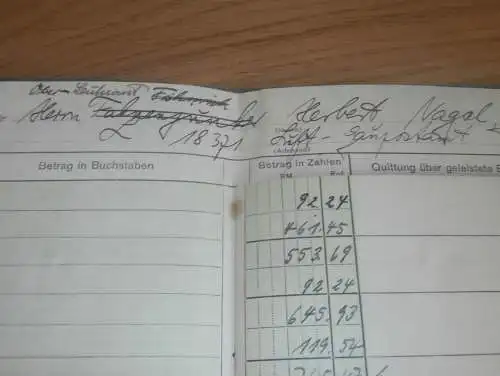 Ober-Leutnant Fähnrich
Herrn Fahnenjunker Herbert Nagel
L 18371 Luft-Gaupostamt
Betrag in Buchstaben Betrag in Zahlen Quittung über geleistete
RM Rpf
92 24
461.45
553 69
92 24
645.93
119.54